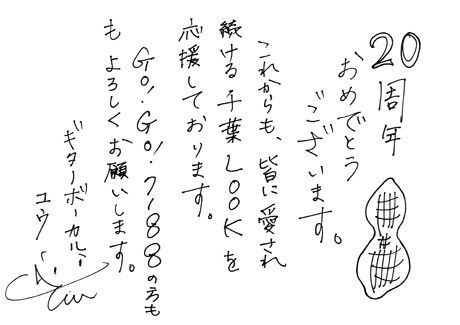 20周年
おめでとう
ございます。
これからも、皆に愛され
続ける千葉LOOKを
応援しております。
Go!Go!7188の方も
もよろしくお願いします。
ギターボーカル:
ユウ